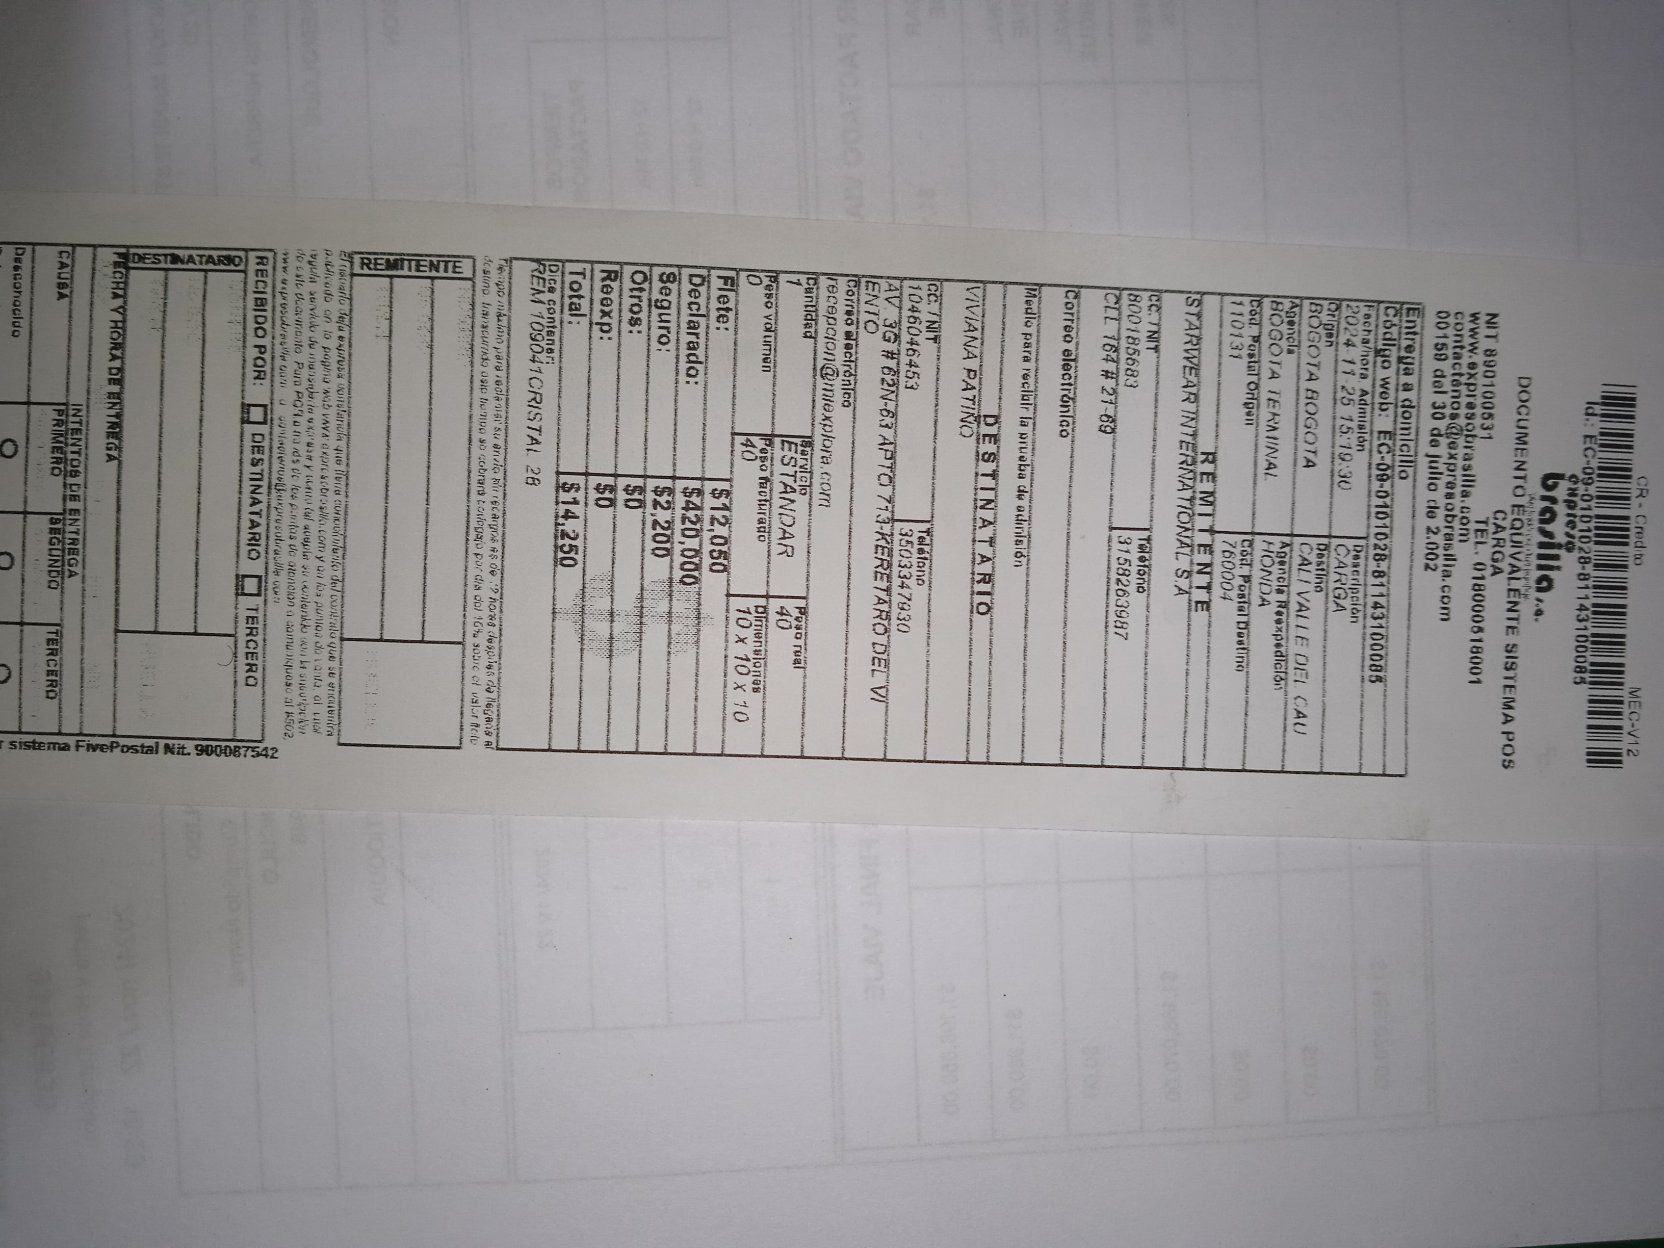 CR - Credito MEC-V12
Id.: EC-09-0101028-81143100085
expreso
brasilia s.a.
DOCUMENTO EQUIVALENTE SISTEMA POS
CARGA
NIT 890100531 TEL. 018000518001
www.expresobrasilia.com
contactenos@expresobrasilia.com
00159 del 30 de julio de 2.002
Entrega a domicilio
Código web: EC-09-0101028-81143100085
Fecha/hora. Admisión Descripción
2024-11-25 15:19:30 CARGA
Origen Destino
BOGOTA BOGOTA CALI VALLE DEL CAU
Agencia Agencia Reexpedición
BOGOTA TERMINAL HONDA
Cód. Postal Origen Cód. Postal Destino
110131 760004
REMITENTE
STARWEAR INTERNATIONAL S.A
CC. / NIT Teléfono
800185683 3158263987
CLL 164 # 21-69
Correo electrónico
Medio para recibir la prueba de admisión
DESTINATARIO
VIVIANA PATIÑO
CC. / NIT Teléfono
1046046453 3503347930
AV. 3G # 62N-63 APTO 713-KERETARO DEL VI
ENTO
Correo electrónico
recepcion@miexplora.com
Cantidad Servicio Peso real
1 ESTANDAR 40
Peso volumen Peso facturado Dimensiones
0 40 10 X 10 X 10
Flete: $12,050
Declarado: $420,000
Seguro: $2,200
Otros: $0
Reexp: $0
Total: $14,250
Dice contener:
REM 109041CRISTAL 28
REMITENTE
RECIBIDO POR: DESTINATARIO TERCERO
DESTINATARIO
FECHA Y HORA DE ENTREGA
INTENTOS DE ENTREGA
CAUSA PRIMERO SEGUNDO TERCERO
Desconocido
sistema FivePostal Nit. 900087542